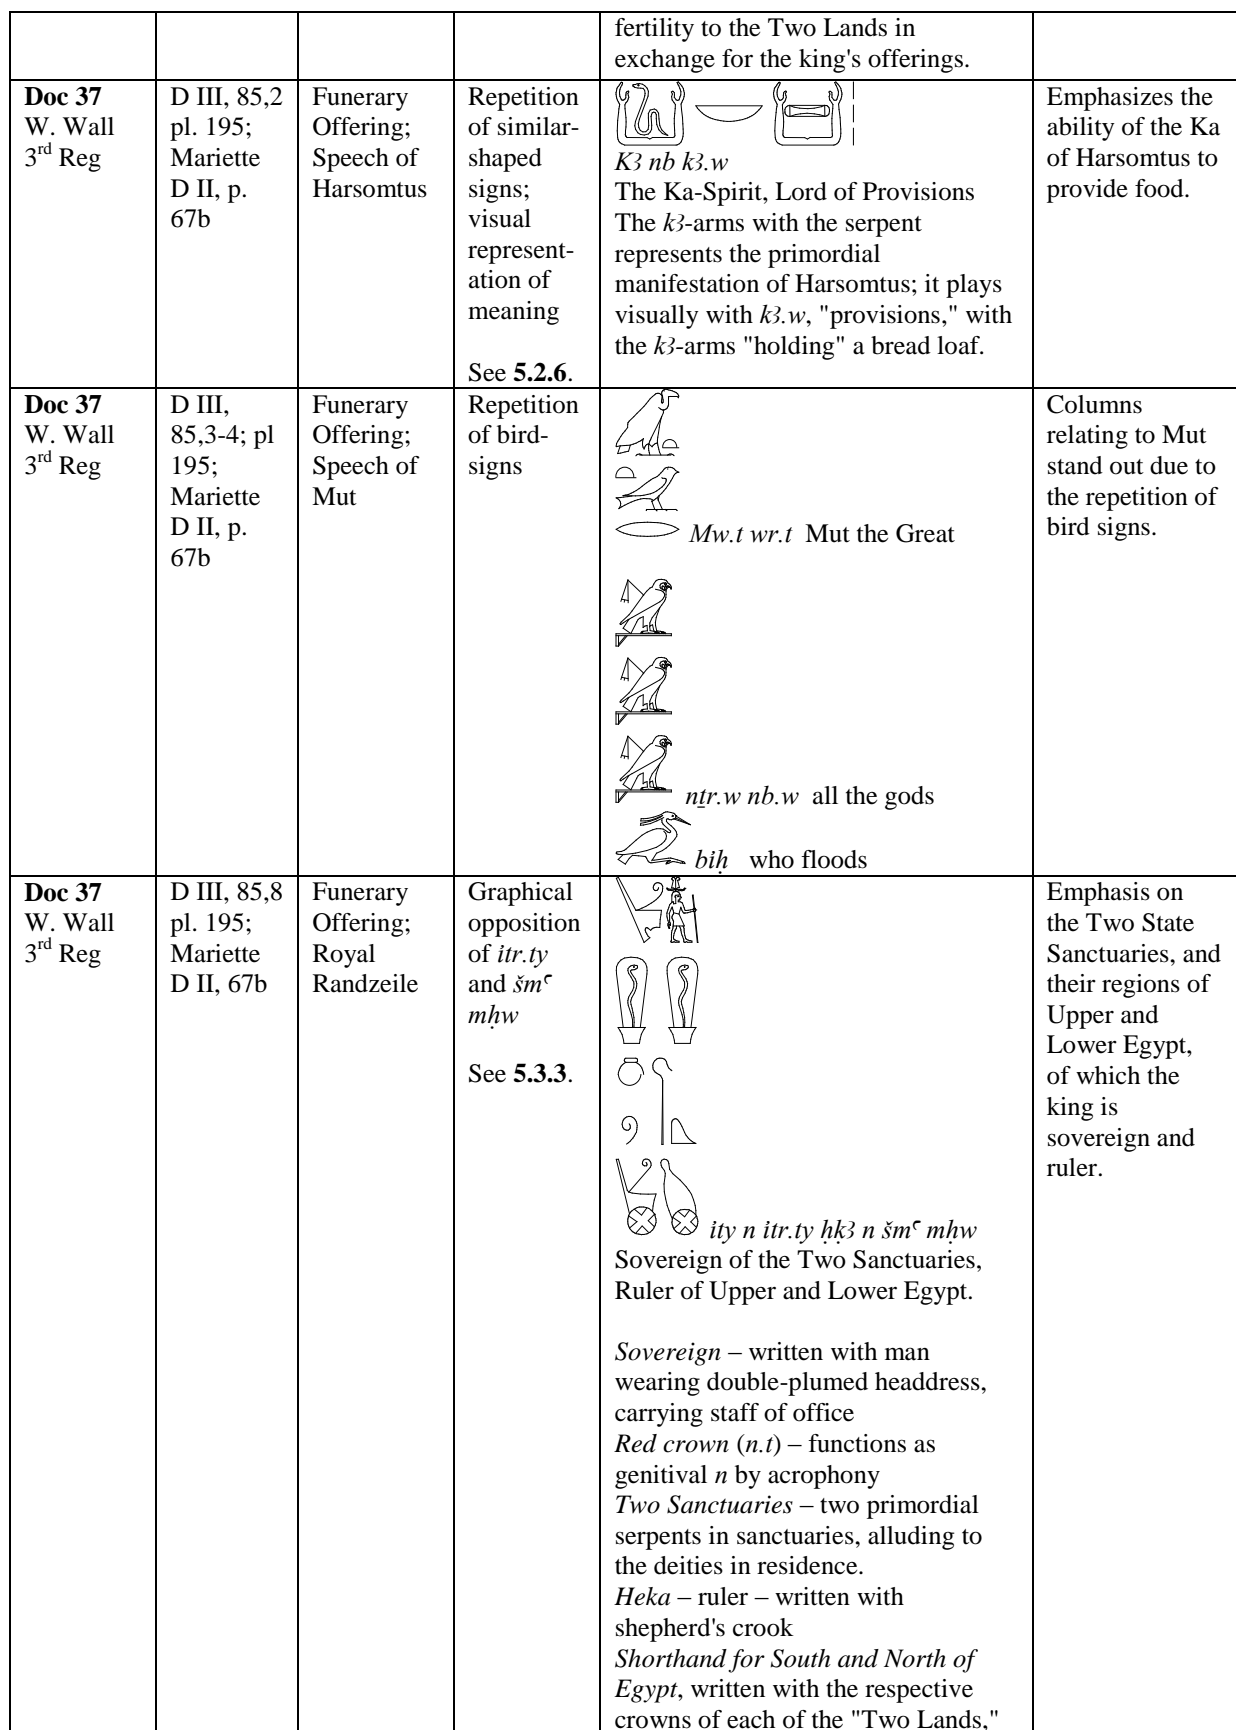 fertility to the Two Lands in
exchange for the king's offerings.
Doc 37
W. Wall
3rd Reg
D III, 85,2
pl. 195;
Mariette
D II, p.
67b
Funerary
Offering;
Speech of
Harsomtus
Repetition
of similar-
shaped
signs;
visual
represent-
ation of
meaning
See 5.2.6.
Kꜣ nb kꜣ.w
The Ka-Spirit, Lord of Provisions
The kꜣ-arms with the serpent
represents the primordial
manifestation of Harsomtus; it plays
visually with kꜣ.w, "provisions," with
the kꜣ-arms "holding" a bread loaf.
Emphasizes the
ability of the Ka
of Harsomtus to
provide food.
Doc 37
W. Wall
3rd Reg
D III,
85,3-4; pl
195;
Mariette
D II, p.
67b
Funerary
Offering;
Speech of
Mut
Repetition
of bird-
signs
Mw.t wr.t Mut the Great
nṯr.w nb.w all the gods
bꞽḥ who floods
Columns
relating to Mut
stand out due to
the repetition of
bird signs.
Doc 37
W. Wall
3rd Reg
D III, 85,8
pl. 195;
Mariette
D II, 67b
Funerary
Offering;
Royal
Randzeile
Graphical
opposition
of ꞽtr.ty
and šmꜥ
mḥw
See 5.3.3.
ꞽty n ꞽtr.ty ḥḳꜣ n šmꜥ mḥw
Sovereign of the Two Sanctuaries,
Ruler of Upper and Lower Egypt.
Sovereign – written with man
wearing double-plumed headdress,
carrying staff of office
Red crown (n.t) – functions as
genitival n by acrophony
Two Sanctuaries – two primordial
serpents in sanctuaries, alluding to
the deities in residence.
Heka – ruler – written with
shepherd's crook
Shorthand for South and North of
Egypt, written with the respective
crowns of each of the "Two Lands,"
Emphasis on
the Two State
Sanctuaries, and
their regions of
Upper and
Lower Egypt,
of which the
king is
sovereign and
ruler.